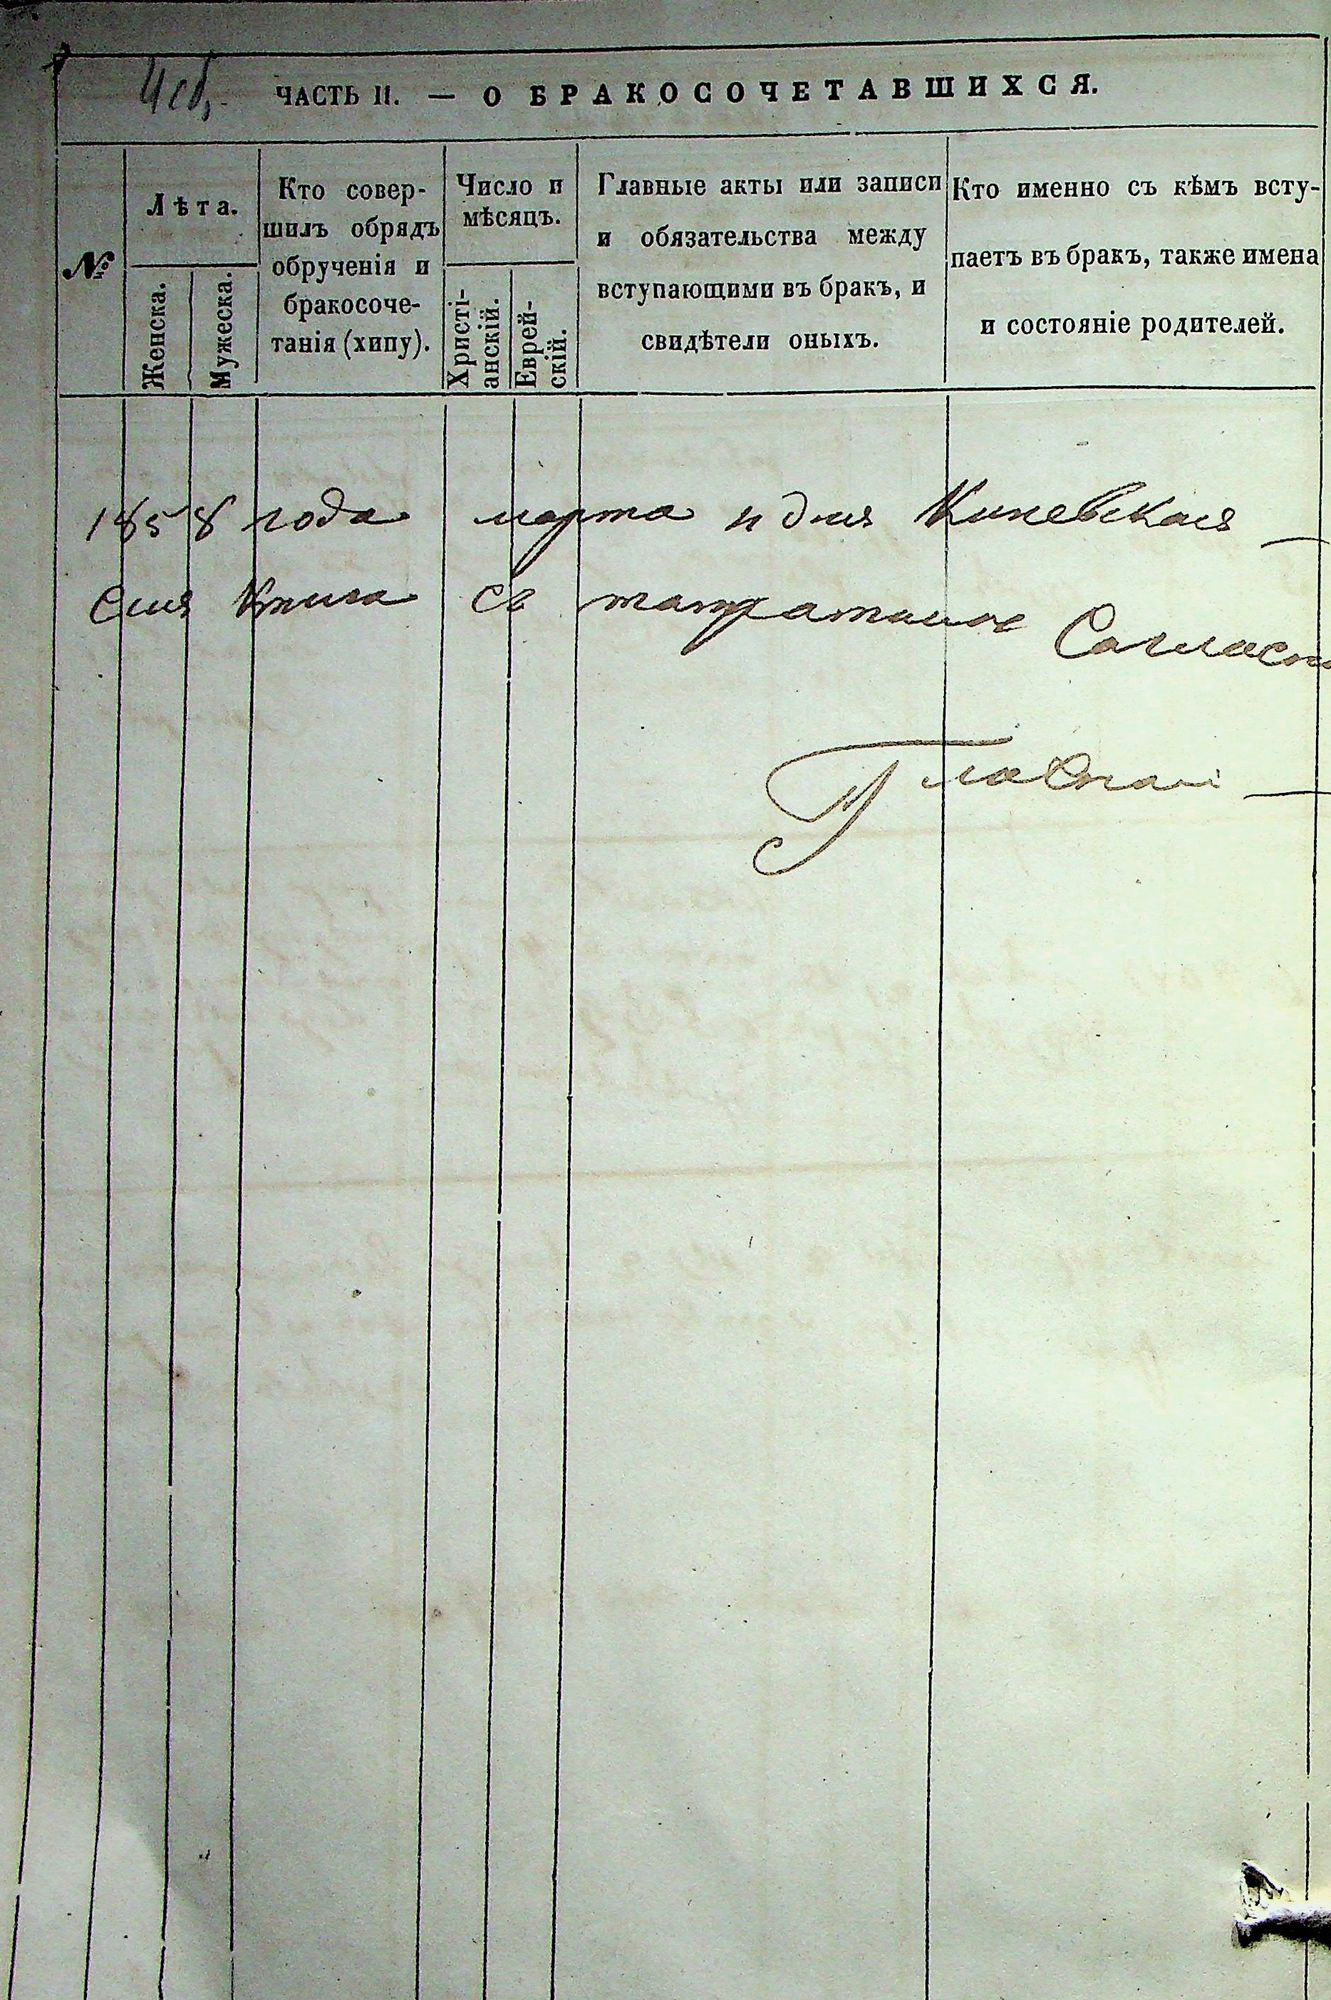 ЧАСТЬ II. — О БРАКОСОЧЕТАВШИХСЯ.
№
Лѣта.
Женска.
Мужеска.
Кто совер-
шилъ обрядъ
обрученія и
бракосоче-
танія (хипу).
Число и
мѣсяцъ.
Христі-
анскій.
Еврей-
скій.
Главные акты или записи
и обязательства между
вступающими въ бракъ, и
свидѣтели оныхъ.
Кто именно съ кѣмъ всту-
паетъ въ бракъ, также имена
и состояніе родителей.
1858 года марта дня
Сия Книга съ
Гласной